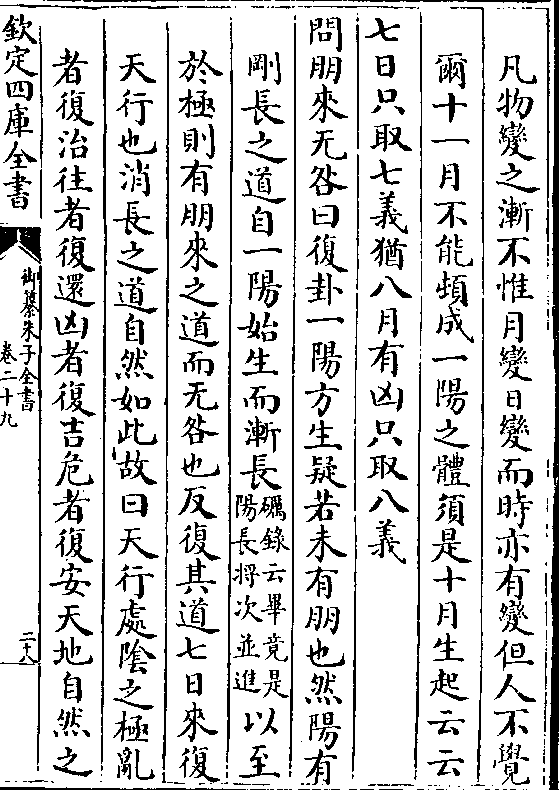 凡物變之漸不惟月變日變而時亦有變但人不覺
爾十一月不能頓成一陽之體須是十月生起云云
七日只取七義猶八月有凶只取八義
問朋來无咎曰復卦一陽方生疑若未有朋也然陽有
剛長之道自一陽始生而漸長礪錄云畢竟是陽長將次並進以至
於極則有朋來之道而无咎也反復其道七日來復
天行也消長之道自然如此故曰天行處陰之極亂
者復治往者復還凶者復吉危者復安天地自然之
欽定四庫全書
御纂朱子全書
卷二十九
二十八